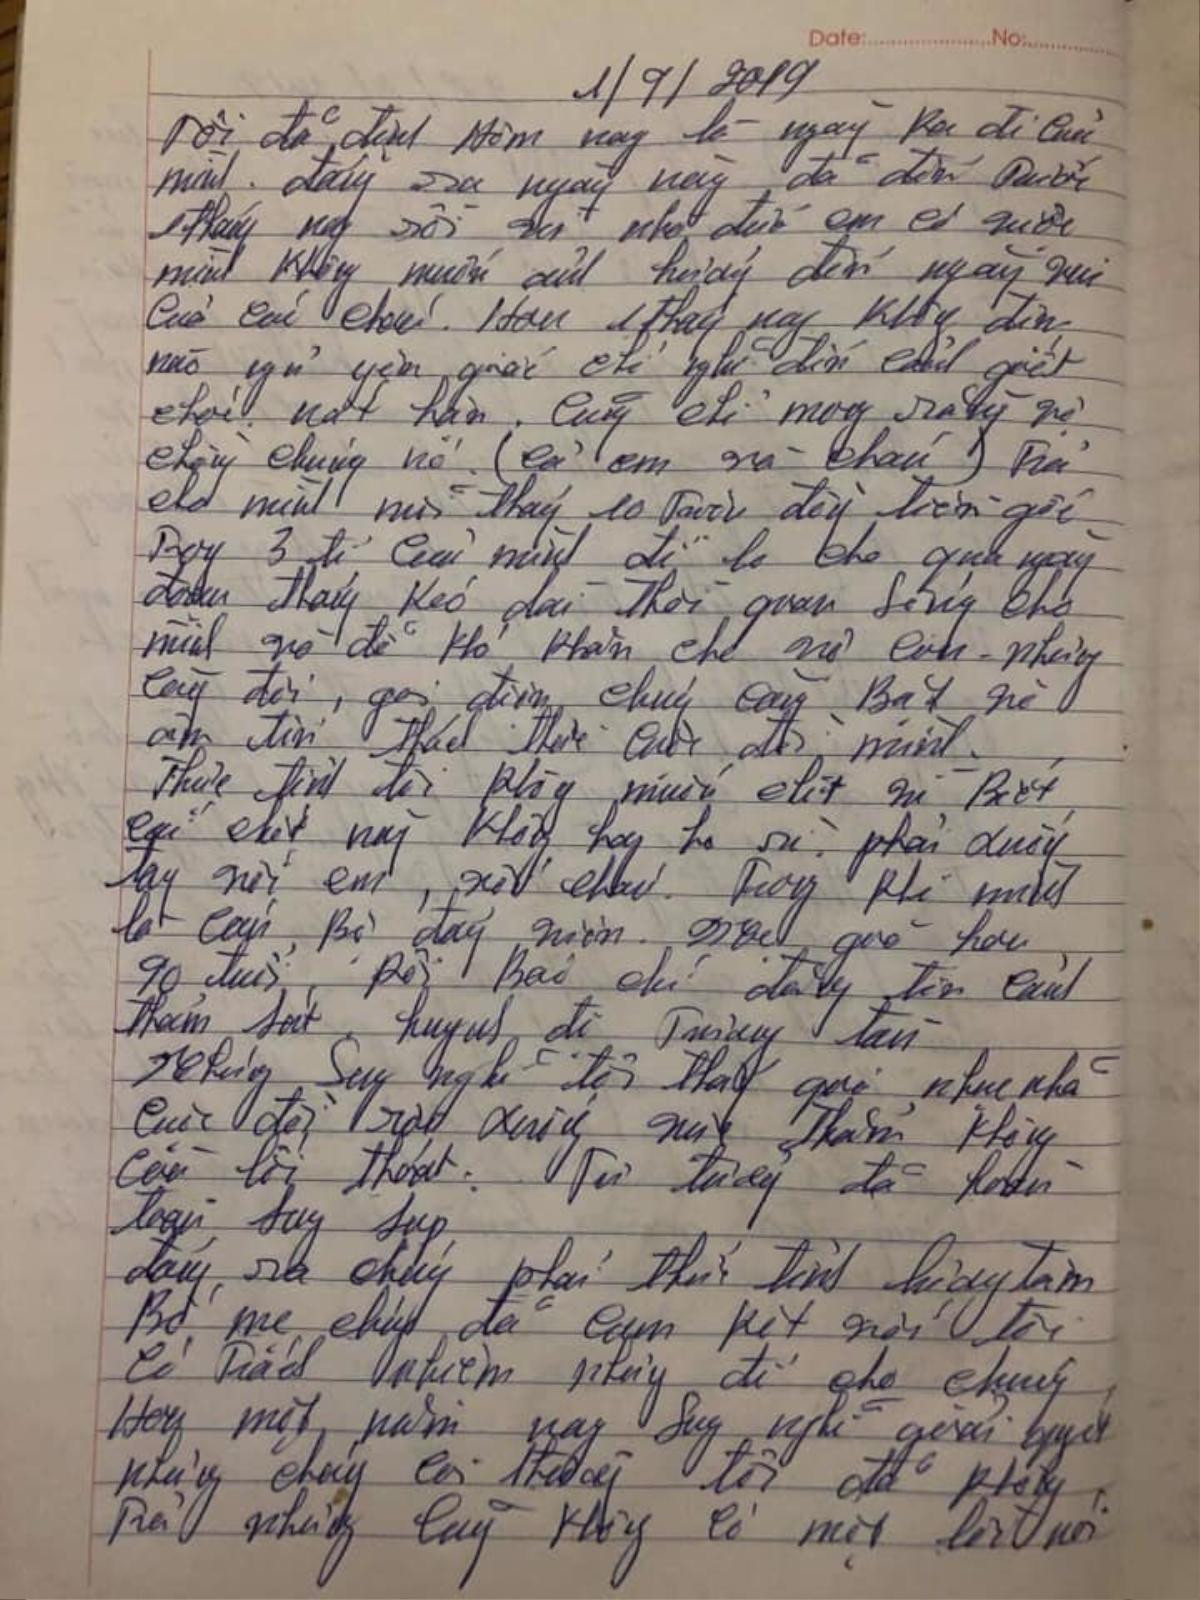 Date:..................No:............
1/9/2019
Tôi đã định Hôm nay là ngày Ra đi Của
mình. đáng ra ngày này đã đến Trước
1 tháng nay rồi vì nhà đứa em có
mình Không muốn ảnh hưởng đến ngày vui
Của các cháu. Hơn 1 tháng nay Không đêm
nào ngủ yên giấc chỉ nghĩ đến cảnh giết
chóc. nát hận. Cũng chỉ mong rằng vợ
chồng chúng nó. (Cả em và cháu) Trả
cho mình mỗi tháng 10 Triệu đồng tiền gốc
Trong 3 tỉ Của mình để lo cho qua ngày
đoạn tháng Kéo dài thời gian Sống Cho
mình và đỡ Khó Khăn cho vợ Con. nhưng
Càng đợi, gọi điện chúng Càng Bặt vô
âm tín thách thức Cuộc đời mình.
Thực tình tôi Không muốn chết vì Biết
Cái chết này Không hay ho gì. phải xuống
tay với em, với cháu. Trong Khi mình
là Cán Bộ đảng viên. Mẹ già hơn
90 tuổi. Rồi Báo chí đăng tin Cảnh
thảm sát, huynh đệ Tương tàn
Những Suy nghĩ tôi thấy quá nhục nhã
Cuộc đời rơi xuống vực thẳm Không
Còn lối thoát. Tư tưởng đã hoàn
toàn Suy Sụp
đáng ra chúng phải thức tỉnh lương tâm
Bố mẹ chúng đã Cam Kết với tôi
Có Trách nhiệm nhưng để cho chúng
Hơn một năm nay Suy nghĩ giải quyết
nhưng chúng Coi thường tôi đã Không
Trả nhưng Cũng Không Có một lời nói